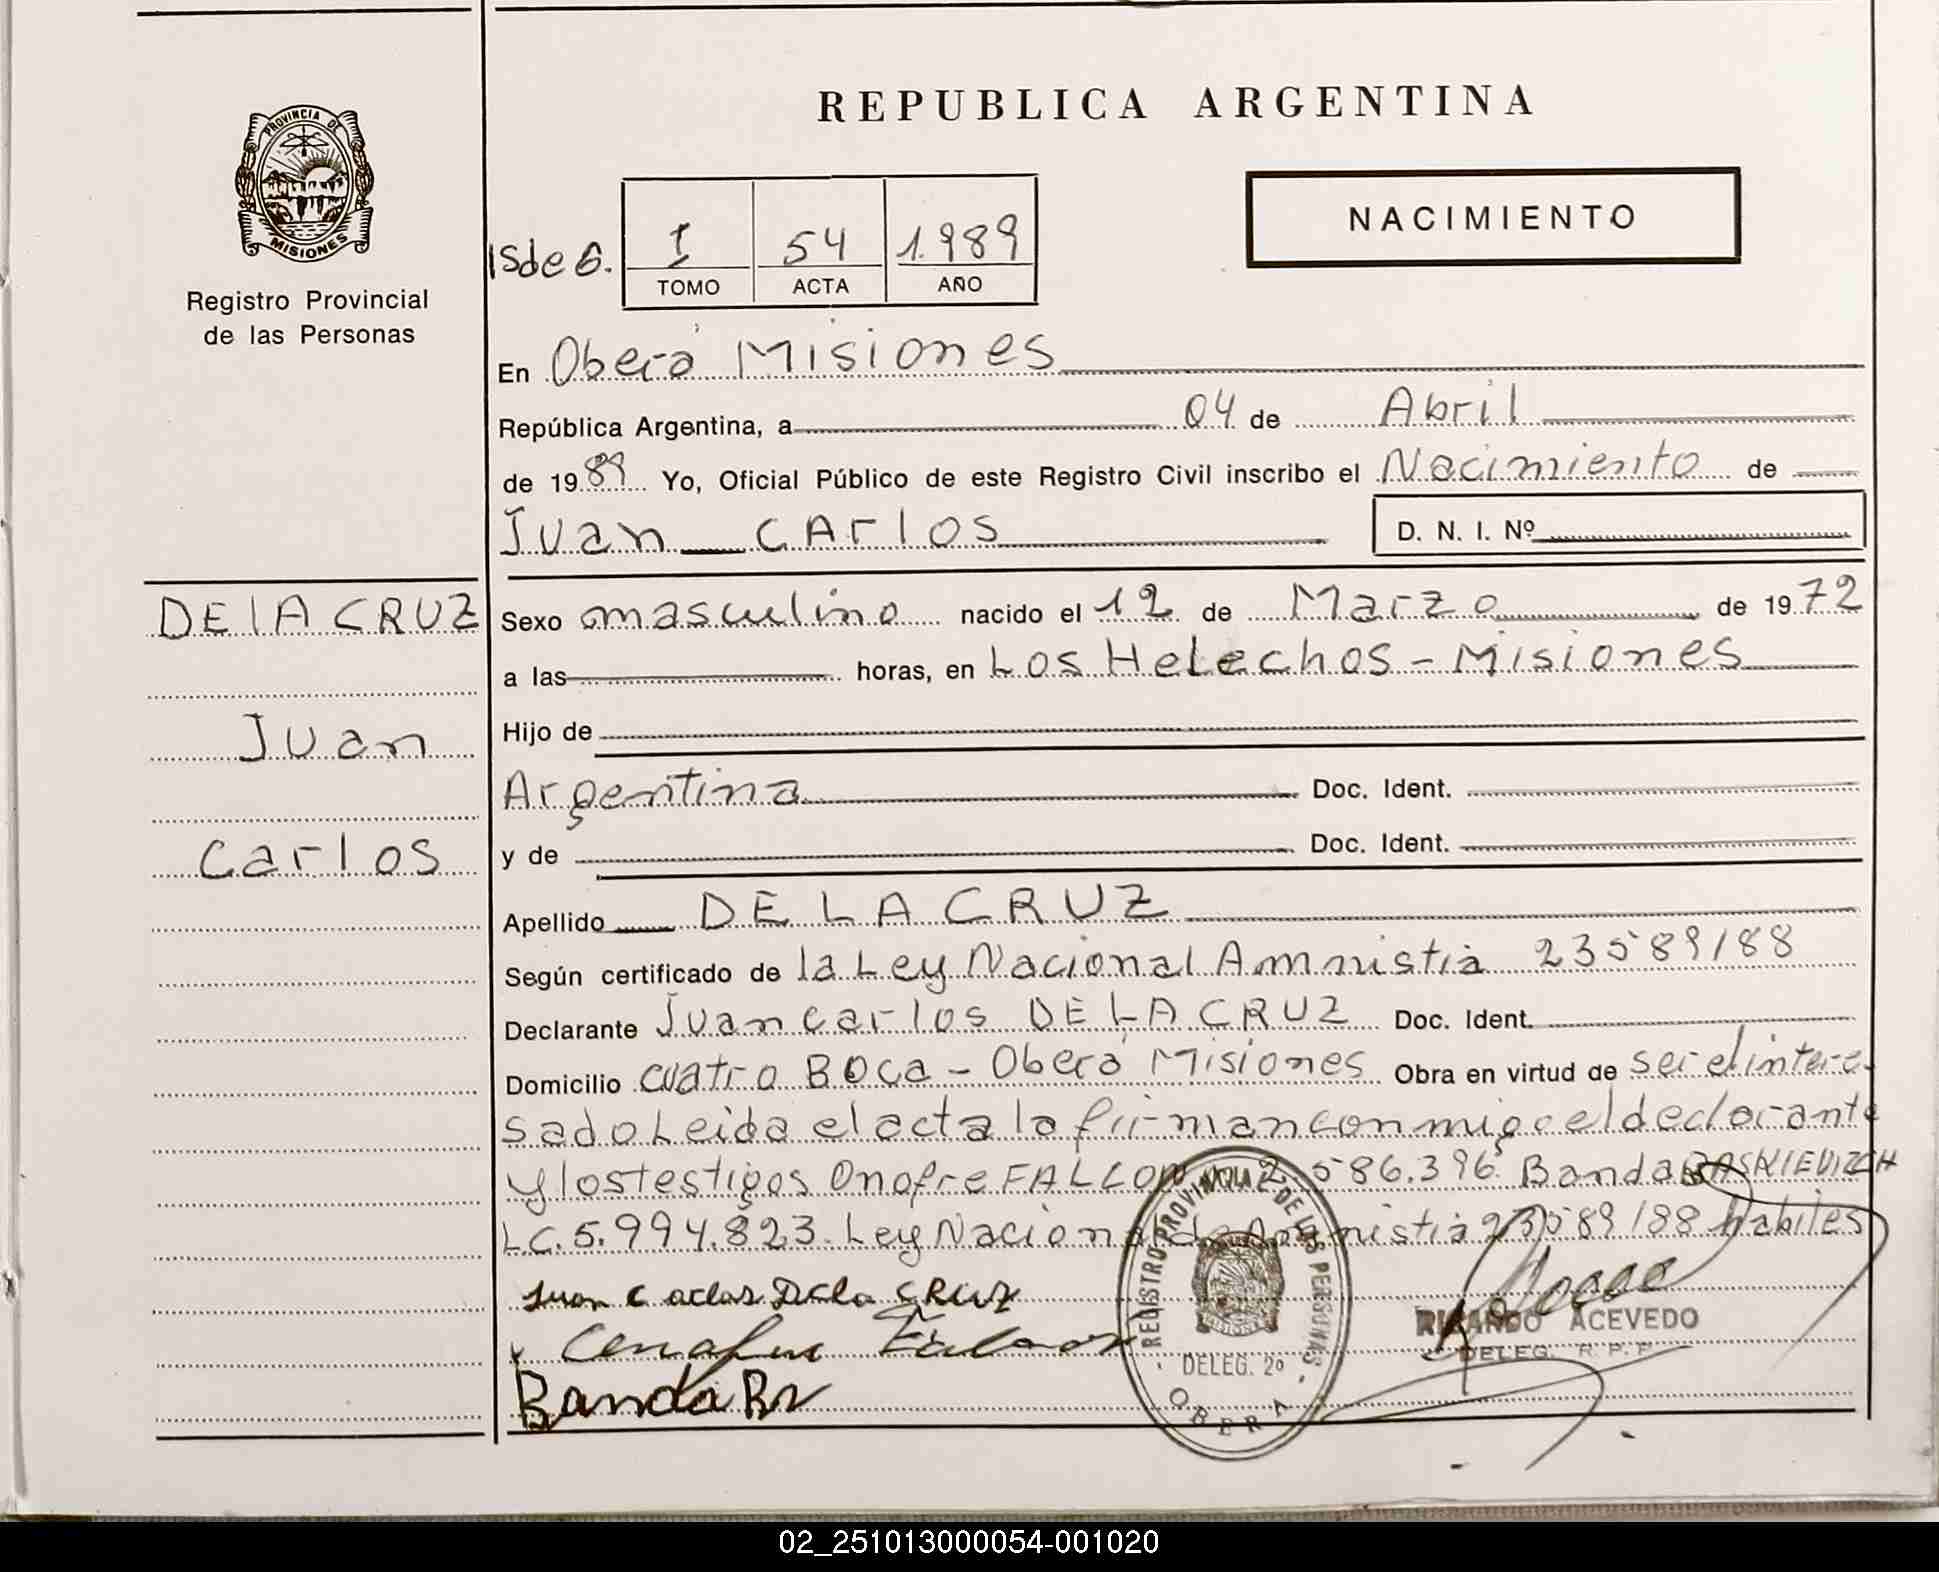 REPUBLICA ARGENTINA
PROVINCIA DE
MISIONES
Registro Provincial
de las Personas
NACIMIENTO
I 54 1.989
TOMO ACTA AÑO
En Oberá Misiones
República Argentina, a 04 de Abril
de 1989 Yo, Oficial Público de este Registro Civil inscribo el Nacimiento de
Juan CARlos D. N. I. Nº
DE lA CRUZ
Juan
Carlos
Sexo masculino nacido el 12 de Marzo de 1972
a las horas, en Los Helechos - Misiones
Hijo de
Argentina Doc. Ident.
y de Doc. Ident.
Apellido DE LA CRUZ
Según certificado de la Ley Nacional Amnistia 23589/88
Declarante Juan carlos DE LA CRUZ Doc. Ident.
Domicilio cuatro Boca - Oberá Misiones Obra en virtud de ser el intere
sado Leida el acta la firman conmigo el declarante
y los testigos Onofre FALCON 2.586.396 Banda
LC. 5.994.823. Ley Nacional de Amnistia 23589/88 habiles
Juan Carlos De la CRUZ
Banda
REGISTRO PROVINCIAL DE LAS PERSONAS
DELEG. 2º
OBERA
RICARDO ACEVEDO
DELEG. R. P. P.
02_251013000054-001020